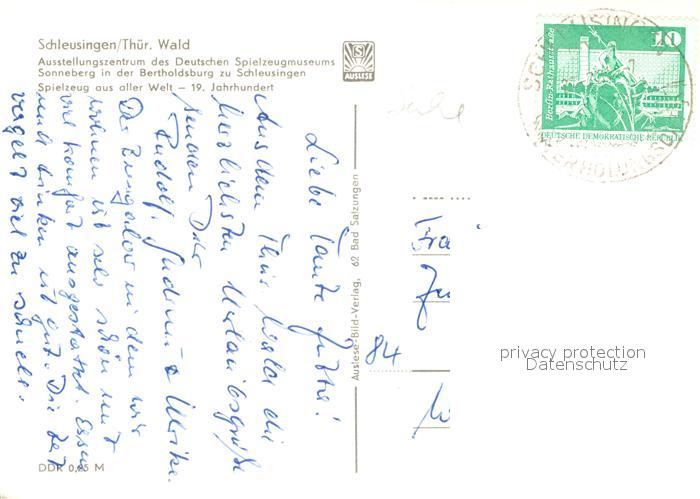 Schleusingen/Thür. Wald
Ausstellungszentrum des Deutschen Spielzeugmuseums
Sonneberg in der Bertholdsburg zu Schleusingen
Spielzeug aus aller Welt – 19. Jahrhundert
AUSLESE
Liebe Tante
Aus dem Thür. Walde die
herzlichsten Urlaubsgrüße
senden Dir
Rudolf, u. Ulrike.
Der Bungalow in dem wir
wohnen ist sehr schön mit
viel Komfort ausgestattet. Essen
und trinken ist gut. Die Zeit
vergeht viel zu schnell.
DDR 0,25 M
Auslese-Bild-Verlag, 62 Bad Salzungen
10
Berlin-Rathausstraße
DEUTSCHE DEMOKRATISCHE REPUBLIK
Fra
84
privacy protection
Datenschutz